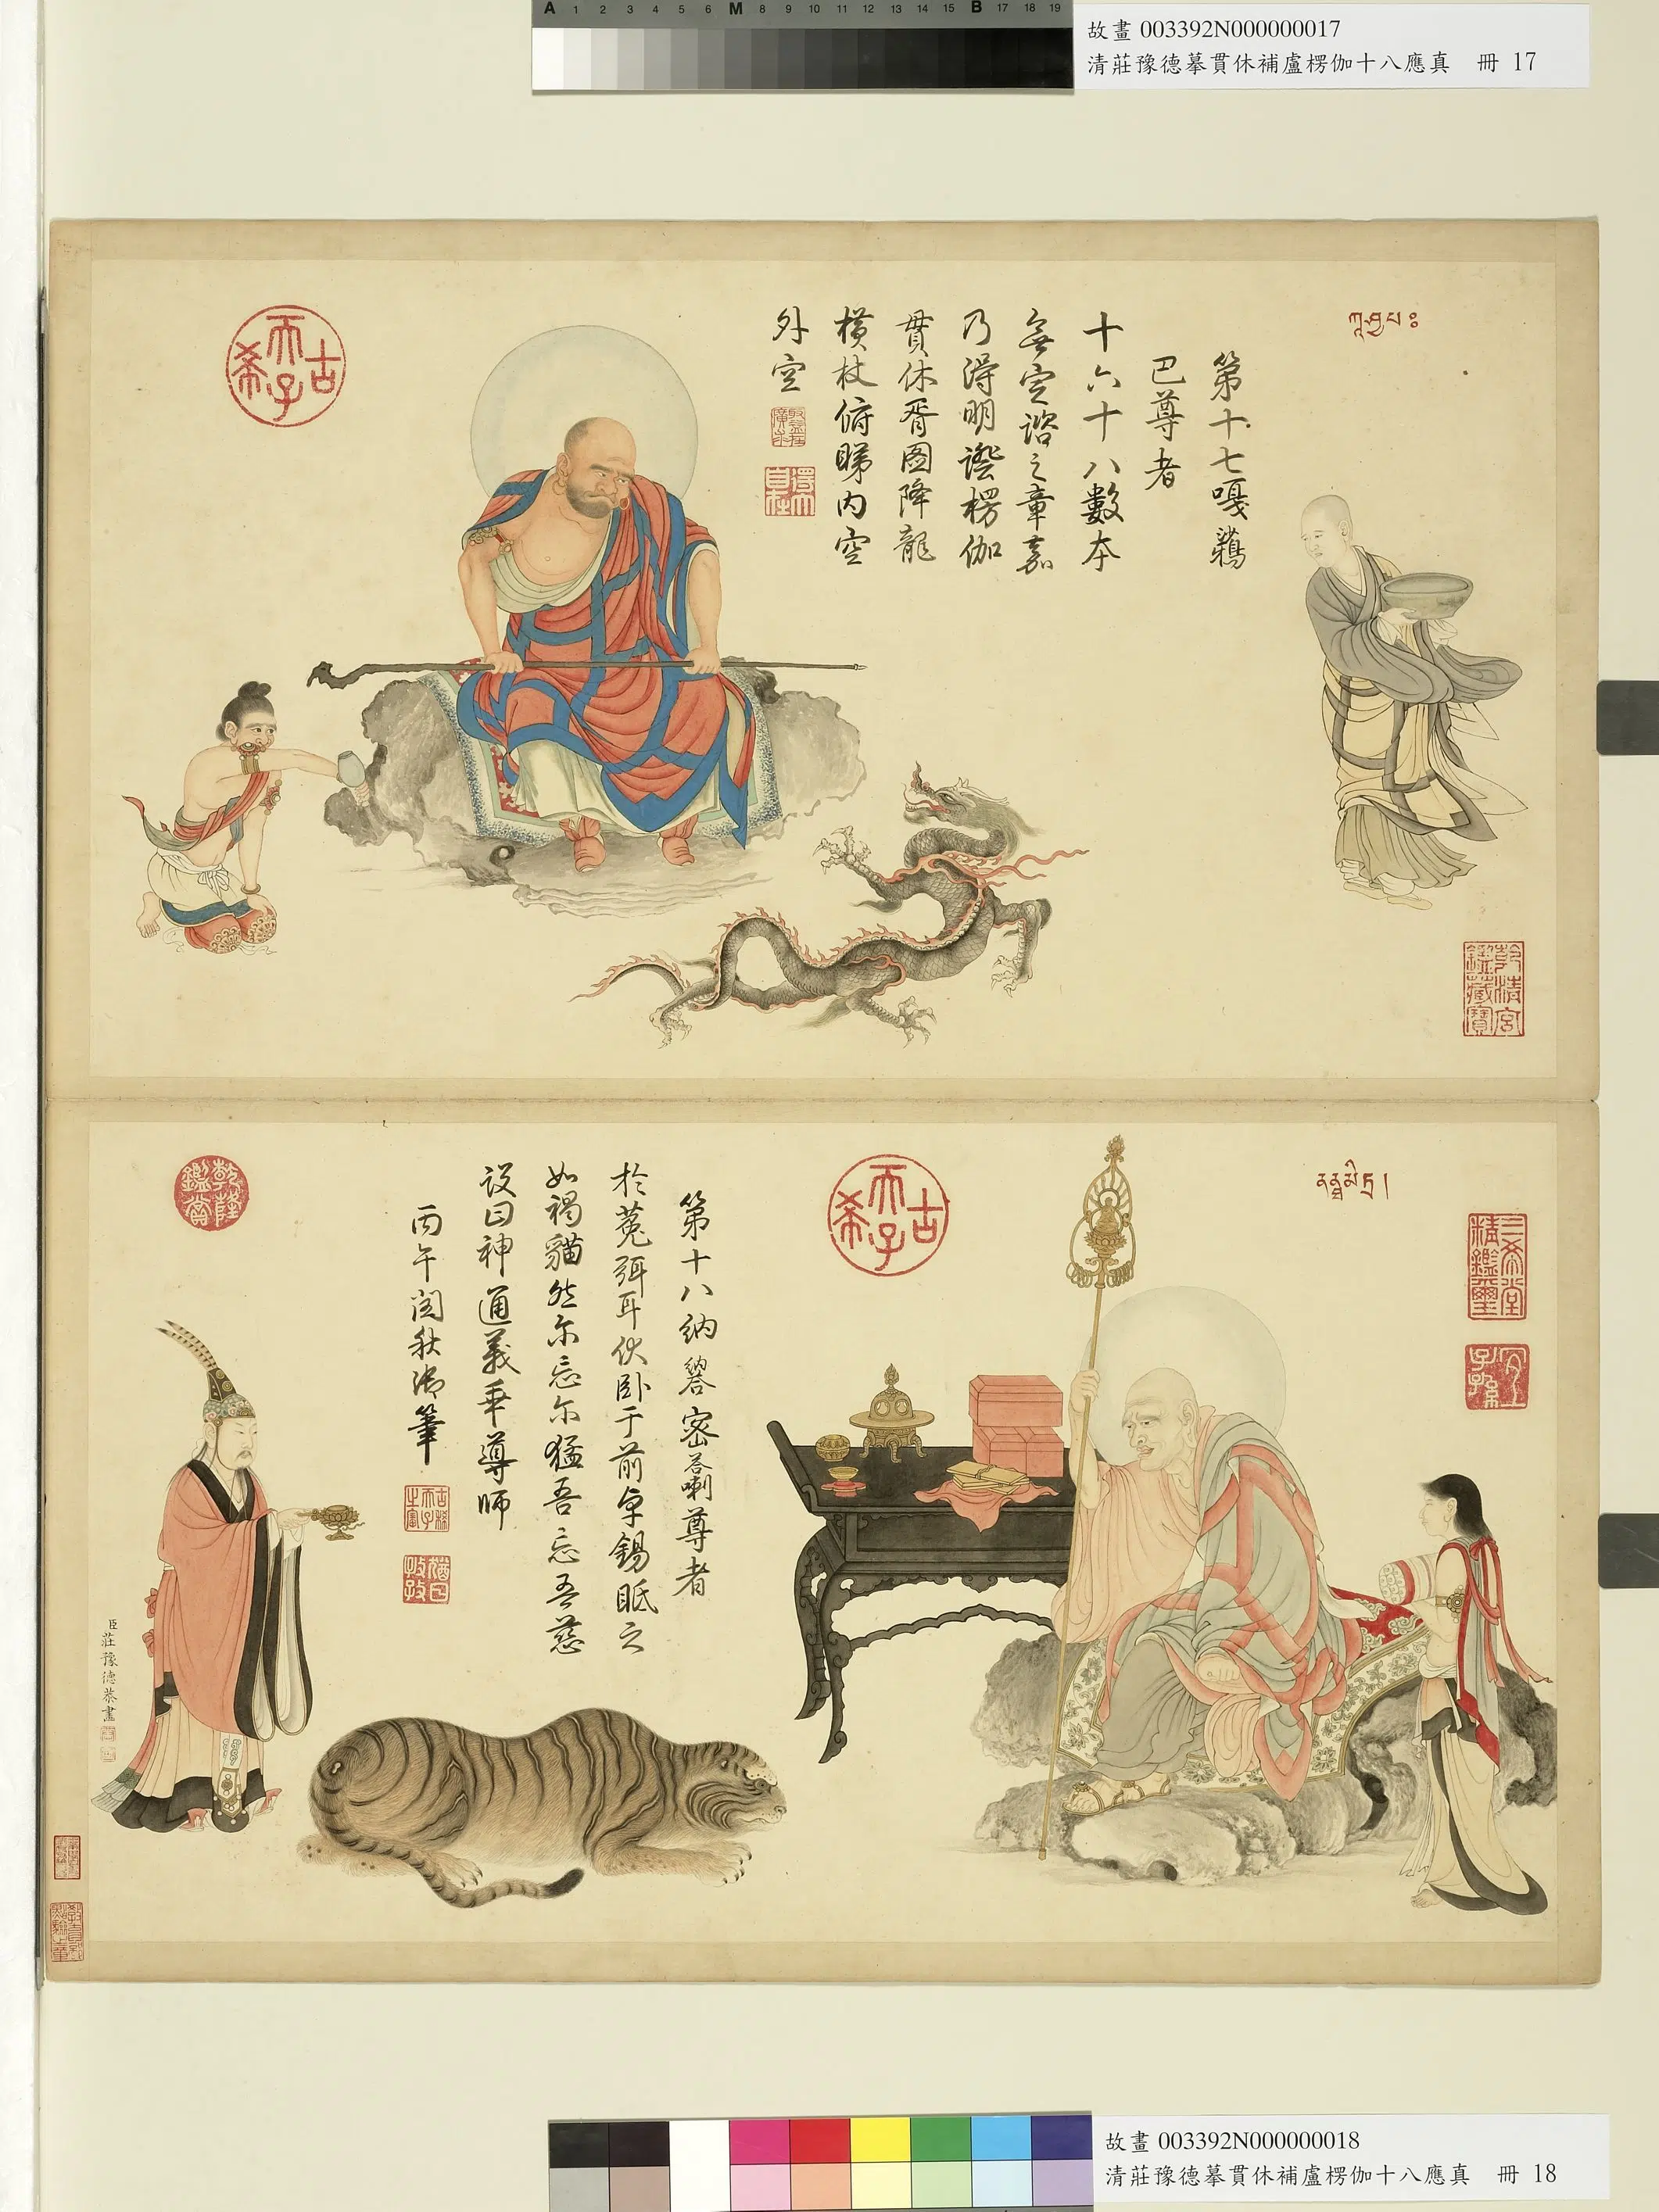 A 1 2 3 4 5 6 M 8 9 10 11 12 13 14 15 B 17 18 19
故畫 003392N000000017
清莊豫德摹貫休補盧楞伽十八應真 冊 17
第十七嘎鴉
巴尊者
十六十八數本
無定諮之章嘉
乃得明證楞伽
貫休胥圖降龍
橫杖俯睇內空
外空
古希天子
乾清宮鑑藏寶
三希堂精鑑璽
宜子孫
古希天子
第十八納納答密答喇尊者
於菟弭耳伏臥于前卓錫眡之
如褐貓然尔忘尔猛吾忘吾慈
設曰神通義乖導師
丙午閏秋御筆
古希天子之寶
猶日孜孜
乾隆鑑賞
臣莊豫德恭畫
故畫 003392N000000018
清莊豫德摹貫休補盧楞伽十八應真 冊 18